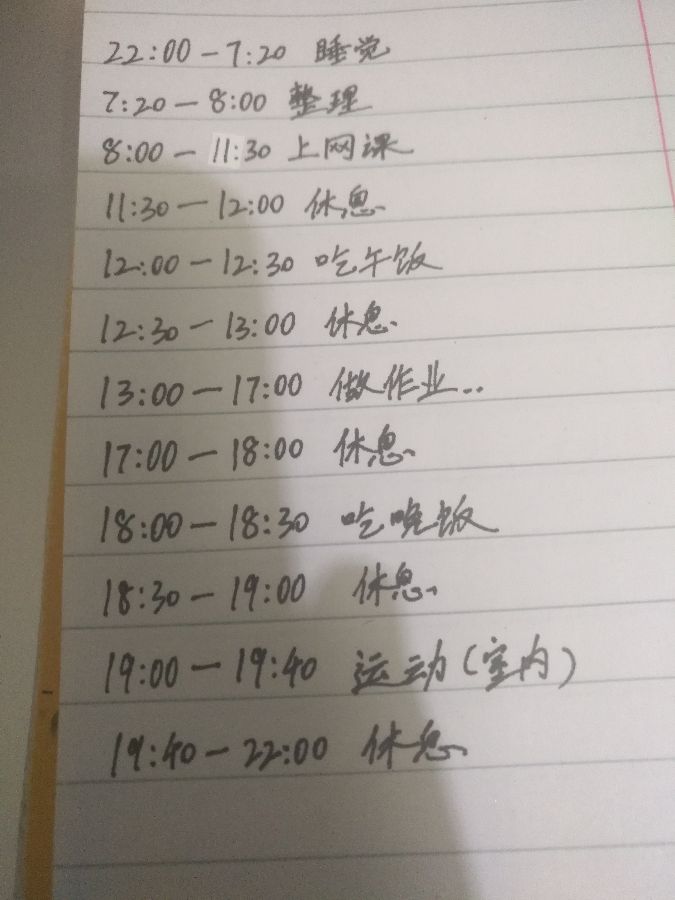 22:00-7:20 睡觉
7:20-8:00 整理
8:00-11:30 上网课
11:30-12:00 休息
12:00-12:30 吃午饭
12:30-13:00 休息
13:00-17:00 做作业..
17:00-18:00 休息
18:00-18:30 吃晚饭
18:30-19:00 休息
19:00-19:40 运动(室内)
19:40-22:00 休息